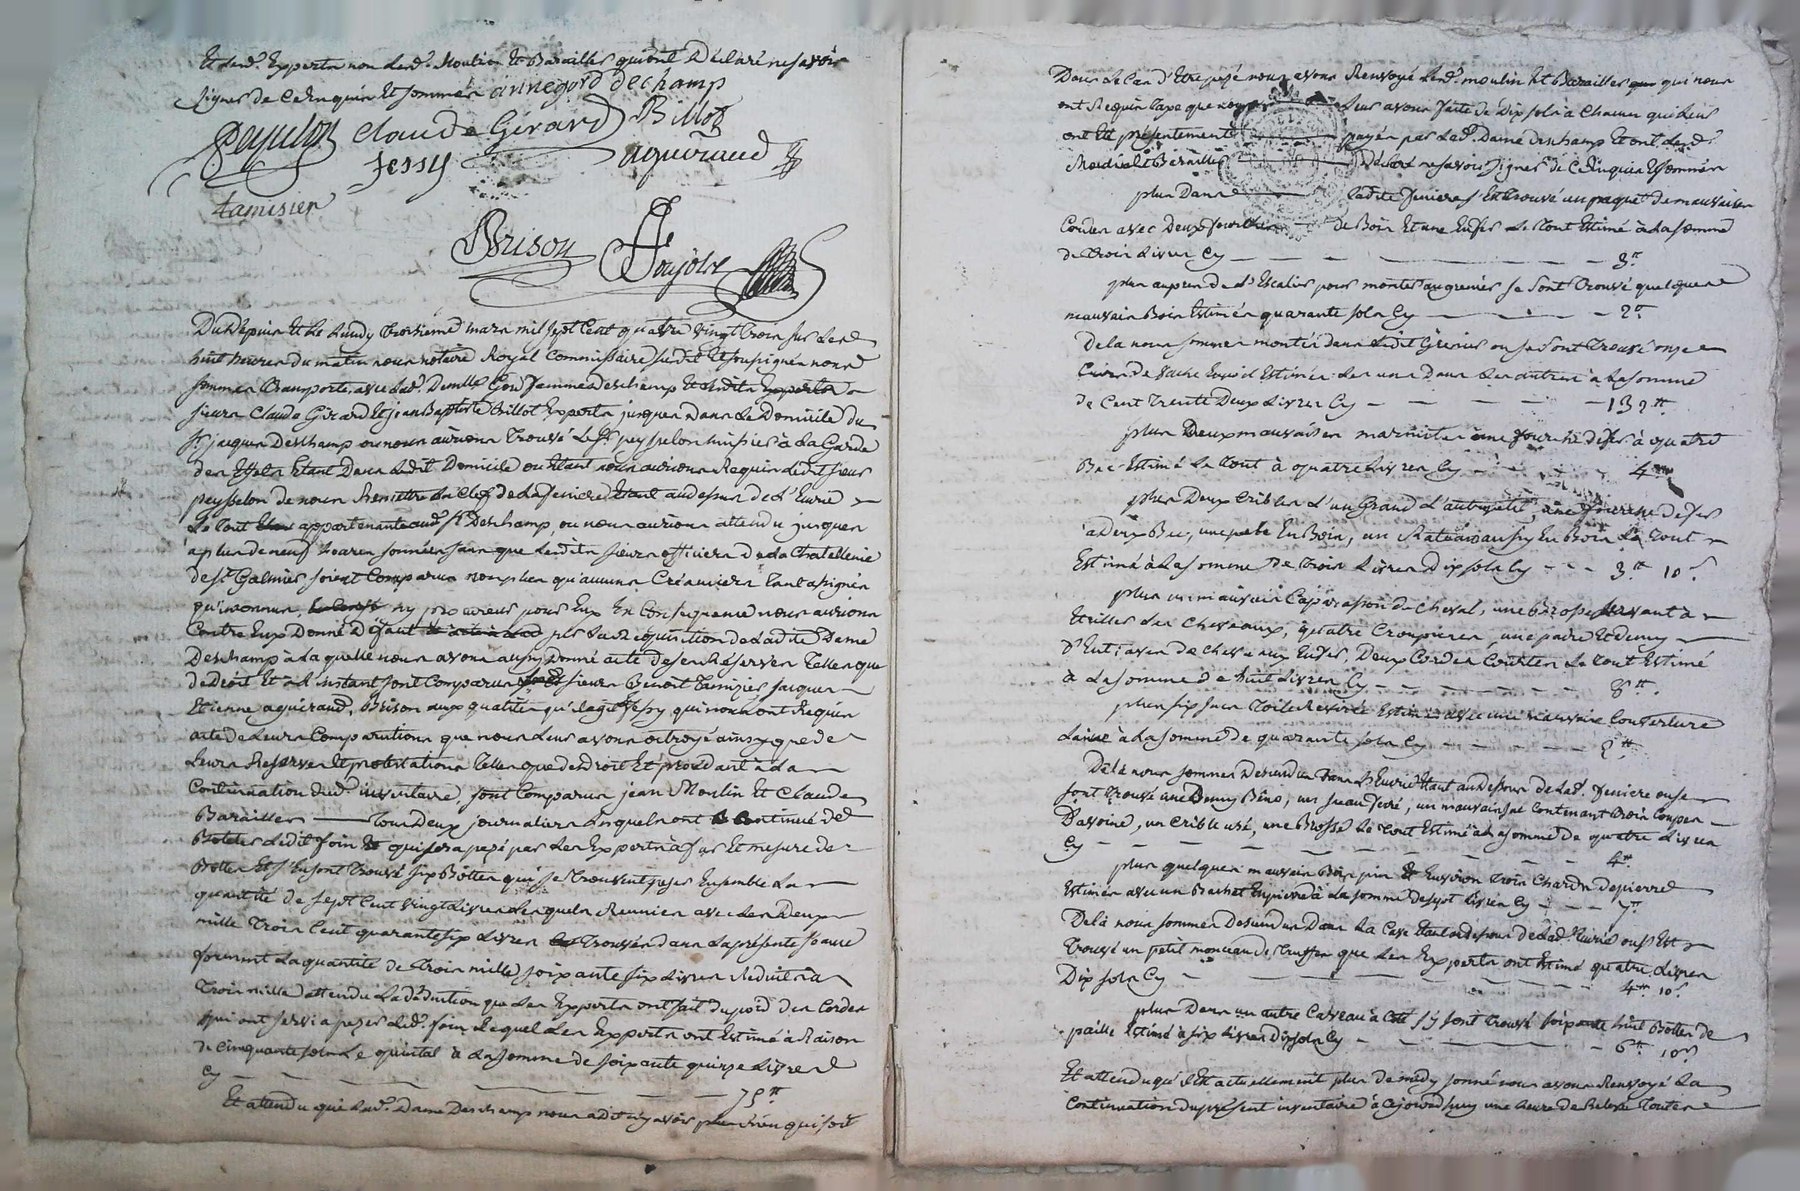 Et lesd. Experts non lesd. Moulin Et Barailler qui ont Déclaré ne savoir
signer de Ce Enquis Et sommés anne gord dechamp
Peysselon Claude Girard Billot
Jessy aguiraud
Tamisier
Brison Poujolx
Du Depuis Et Le Lundy Troisieme mars mil sept Cent quatre vingt Trois sur Les
huit heures du matin nous notaire Royal Commissaire susdit Et soussigné nous
sommes Transporté avec lad. Demlle Gord femme Deschamp Et lesdits Experts
sieurs Claude Girard Et Jean Baptiste Billot Experts jusques dans Le Domicile du
Sr. jacques Deschamp ou nous aurions Trouvé Le Sr. peysselon huissier à La Garde
des Effets Etant Dans Ledit Domicile ou Etant nous aurions Requis Ledit sieur
peysselon de nous Remettre La Clef de La feniere Etant au dessus de L'Eurie
Le Tout appartenant aud. Sr. Deschamp, ou nous aurions attendu jusques
à plus de neuf heures sonnées sans que Lesdits sieurs officiers de La Chatellenie
de St. Galmier soient Comparus non plus qu'aucuns Créanciers Tant assignés
qu'inconnus, ny procureur pour Eux En Consequence nous aurions
Contre Eux Donné Défaut sur La Requisition de Ladite Dame
Deschamp à La quelle nous avons aussy Donné acte de ses Réserves Telles que
de Droit Et à L'instant sont Comparus sieurs Benoit Tamizier, jacques
Etienne aguiraud, Brison aux qualités qu'il agit Jessy qui nous ont Requis
acte de Leurs Comparutions que nous Leur avons octroyé ainsy que de
Leurs Reserves Et protestations Telles que de droit Et procédant à La
Continuation dud. inventaire, sont Comparus jean Moulin Et Claude
Barailler Tous Deux journaliers Lesquels ont Continué de
Botteler Ledit foin qui sera pezé par Les Experts à fur Et mesure de
Bottes Et s'En sont Trouvé six Bottes qui se Trouvent pezer Ensemble La
quantité de sept Cent vingt Livres Lesquels Reunies avec Les Deux
mille Trois Cent quarante six Livres Trouvées dans La présente seance
forment La quantité de Trois mille soixante six Livres Reduite à
Trois mille attendu La déduction que Les Experts ont fait du poid des Cordes
qui ont servi à pezer Led. foin Lequel Les Experts ont Estimé à Raison
de cinquante sols Le quintal à La somme de soixante quinze Livres
Cy 75 ₶
Et attendu que Lad. Dame Deschamp nous a dit n'y avoir plus Rien qui soit
Dans Le Cas d'Etre pezé nous avons Renvoyé Lesd. moulin Et Barailler qui nous
ont Requis Taxe que Leur avons faite de Dix sols à Chacun qui Leur
ont Eté présentement payés par Lad. Dame Deschamp Et ont Lesd.
Barailler Déclaré ne savoir signer de Ce Enquis Et sommés
plus Dans Ladite feniere s'Est Trouvé un paquet de mauvaises
Cordes avec Deux de Bois Et une Le Tout Estimé à La somme
de Trois Livres Cy 3 ₶
plus auprès de L'Escalier pour monter au grenier se sont Trouvé quelques
mauvais Bois Estimés quarante sols Cy 2 ₶
De là nous sommes montés dans Ledit Grenier ou se sont Trouvé onze
Cuirs de vache Estimés Les uns Dans Les autres à La somme
de Cent Trente Deux Livres Cy 132 ₶
plus Deux mauvaises marmites une fourche de fer à quatre
Bec Estimé Le Tout à quatre Livres Cy 4 ₶
plus Deux Cribles L'un Grand L'autre petit, une de fer
à Deux Bec, une pele En Bois, un Rateau aussy En Bois Le Tout
Estimé à La somme De Trois Livres Dix sols Cy 3 ₶ 10 s
plus un mauvais Caparasson de cheval, une Brosse servant à
Etriller Les Chevaux, quatre Croupieres, une paire Et Demy
d'Entraves de chevaux En fer, Deux Cordes Courtes Le Tout Estimé
à La somme de huit Livres Cy 8 ₶
plus six sacs Toile Estimés avec une mauvaise Couverture
Laine à La somme de quarante sols Cy 2 ₶
De là nous sommes Descendu Dans L'Eurie Etant au Dessous de Lad. feniere ou se
sont Trouvé une Benne, un seau ferré, un mauvais sac Contenant Trois Coupes
D'avoine, un Crible usé, une Brosse Le Tout Estimé à La somme De quatre Livres
Cy 4 ₶
plus quelques mauvais Bois pin Et Environ Trois Chards De pierres
Estimés avec un Bachat En pierre à La somme De sept Livres Cy 7 ₶
De là nous sommes Descendu Dans La Cave Etant au dessous de Lad. Eurie ou s'Est
Trouvé un petit monceau de Truffes que Les Experts ont Estimé quatre Livres
Dix sols Cy 4 ₶ 10 s
plus Dans un autre Caveau à Coté s'y sont Trouvé soixante huit Bottes de
paille Estimé à six Livres Dix sols Cy 6 ₶ 10 s
Et attendu qu'il Est actuellement plus De midy sonné nous avons Renvoyé La
Continuation du présent inventaire à Cejourd'huy une heure de Relevée Toutes